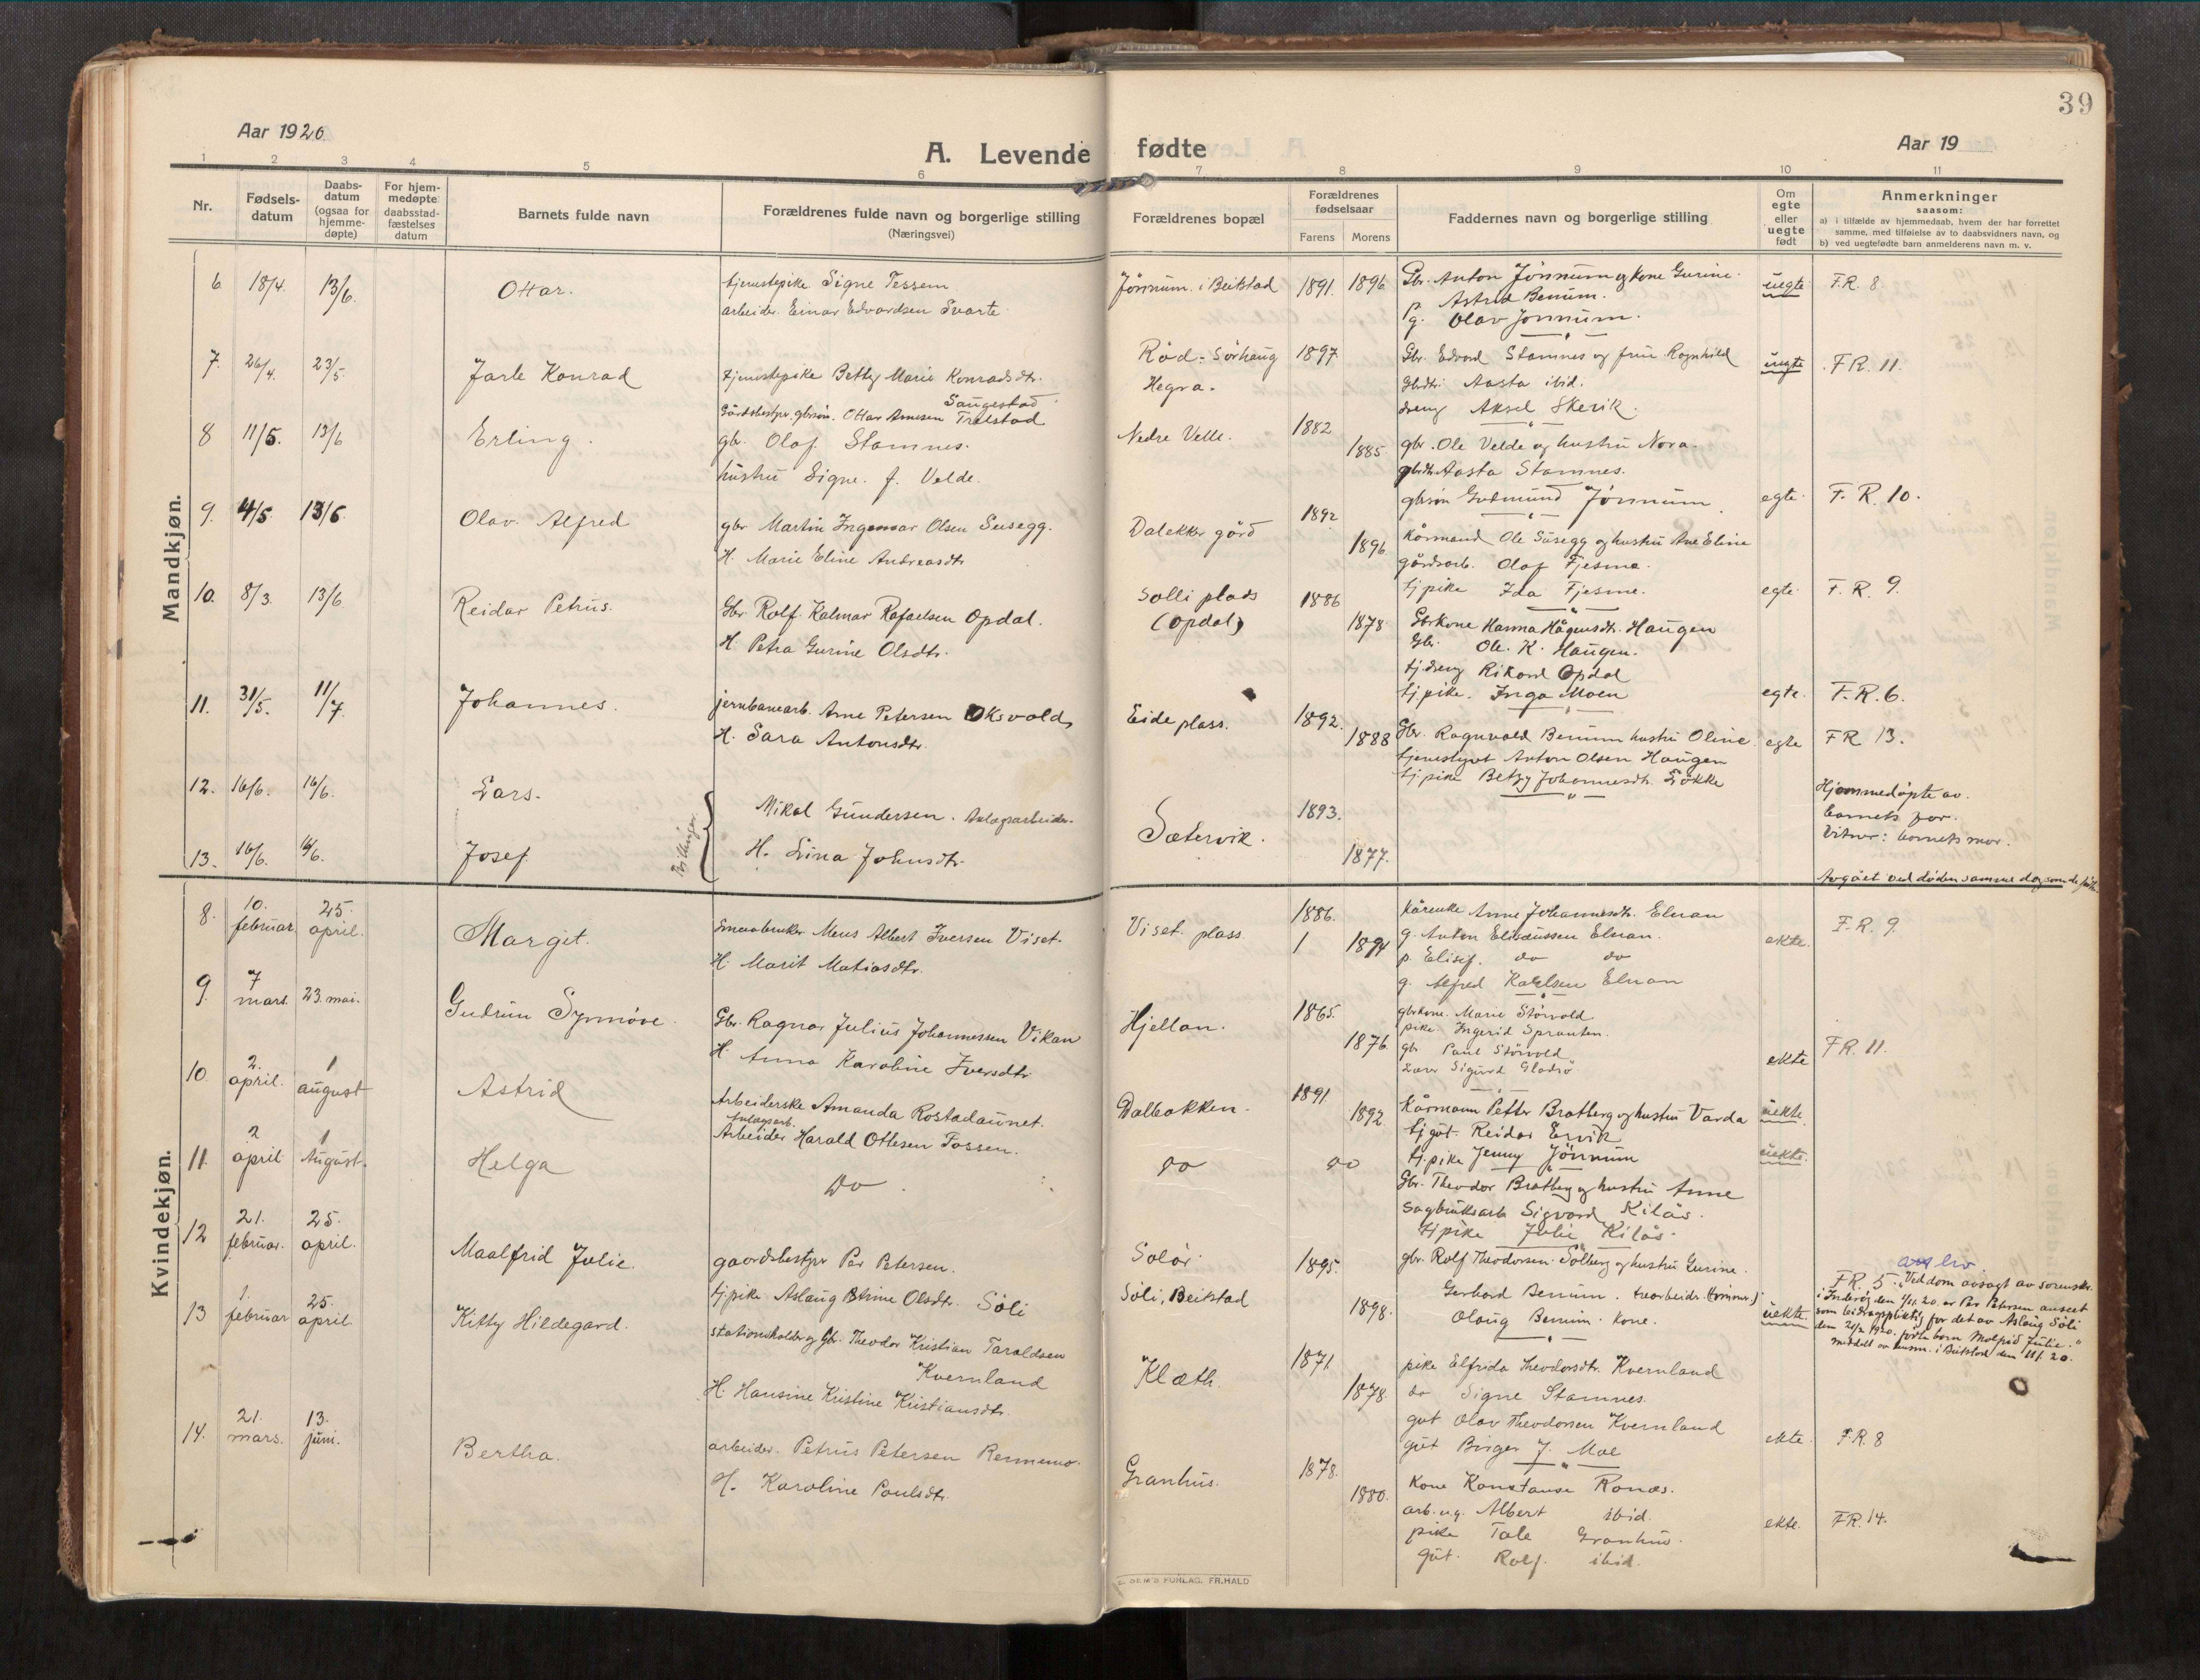 39
Aar 1920.
A. Levende fødte
Aar 19
1 2 3 4 5 6 7 8 9 10 11
Nr.
Fødsels-
datum
Daabs-
datum
(ogsaa for
hjemme-
døpte)
For hjem-
medøpte
daabsstad-
fæstelses
datum
Barnets fulde navn
Forældrenes fulde navn og borgerlige stilling
(Næringsvei)
Forældrenes bopæl
Forældrenes
fødselsaar
Farens Morens
Faddernes navn og borgerlige stilling
Om
egte
eller
uegte
født
Anmerkninger
saasom:
a) i tilfælde av hjemmedaab, hvem der har forrettet
samme, med tilføielse av to daabsvidners navn, og
b) ved uegtefødte barn anmelderens navn m. v.
Mandkjøn.
6 18/4. 13/6. Ottar.
tjenestepike Signe Tessem
arbeider. Einar Edvardsen Svarte
Jønnum. i Beitstad 1891. 1896
Gbr. Anton Jønnum og kone Gurine.
p. Astrid Benum.
g. Olav Jønnum.
uegte F.R. 8.
7. 26/4. 23/5. Jarle Konrad
tjenestepike Betty Marie Konradsdtr.
Saugestad
Gårdsbestyr. gbrsøn. Ottar Arnesen Trælstad
Rød = Sørhaug 1897
Hegra.
Gbr. Edvard Stamnes og frue Ragnhild
Gbdtr. Aasta ibid.
dreng Aksel Skevik.
uegte F.R. 11.
8 11/5. 13/6 Erling.
gbr. Olaf Stamnes.
hustru Signe. f. Velde.
Nedre Velle. 1882
1885.
gbr. Ole Velde og hustru Nora.
gbrdtr. Aasta Stamnes.
gbrsøn Gudmund Jønnum.
egte. F. R. 10.
9. 4/5 13/6. Olav. Alfred
gbr Martin Ingemar Olsen Susegg.
H. Marie Eline Andreasdtr
Dalekker gård 1892
1896.
Kårmand Ole Susegg og hustru Ane Eline
gårdsarb. Olaf Fjesme.
tjpike Ida Fjesme.
egte. F. R. 9.
10. 8/3. 13/6 Reidar Petrus.
Gbr. Rolf Kalmar Rafaelsen Opdal.
H. Petra Gurine Olsdtr.
Solli plads
(Opdal) 1886
1878
Gbrkone Hanna Hågensdtr. Haugen
Gbr. Ole. K. Haugen.
tj.dreng Rikard Opdal
tj.pike. Inga Moen
egte. F.R. 6.
11. 31/5. 11/7 Johannes.
jernbanearb. Arne Petersen Oksvold,
H. Sara Antonsdtr.
Eide plass. 1892.
1888
Gbr. Ragnvald Benum hustru Oline.
tjenestegut Anton Olsen Haugen
tj.pike Betzy Johannesdtr. Løkke
egte FR 13.
12. 16/6. 16/6. Lars.
13. 16/6. 16/6. Josef
Tvillinger.
Mikal Gundersen. Anlægsarbeider.
H. Lina Johnsdtr.
Sætervik. 1893.
1877.
Hjemmedøpte av.
barnets far.
Vitner: barnets mor.
Avgået ved døden samme dag som de født
Kvindekjøn.
8. 10. februar. 25. april. Margit.
Smaabruker Meus Albert Iversen Viset.
H. Marit Matiasdtr.
Viset. plass 1886.
1 1894
Kårenke Anne Johannesdtr. Elnan
g. Anton Eliseussen Elnan.
p. Elisif. do do
g. Alfred Karlsen Elnan
ekte. F.R. 9.
9. 7 mars. 23. mai. Gudrun Synnøve.
Gbr. Ragnar Julius Johannessen Vikan
H. Anna Karoline Iversdtr
Hjellan. 1865.
1876.
gbrkone. Marie Størvold
pike Ingerid Sprauten.
gbr Paul Størvold
Lærer Sigurd Gladsø
ekte FR. 11.
10. 2. april. 1 august Astrid
Arbeiderske Amanda Rostadaunet.
Anlægsarb.
Arbeider Harald Ottesen Fossen.
Dalbakken. 1891
1892.
Kårmann Petter Bratberg og hustru Varda
tjgut. Reidar Ervik
tj.pike Jenny Jønnum
uekte.
11. 2 april 1 August. Helga
Do.
do do
Gbr. Theodor Bratberg og hustru Anne
sagbruksarb Sigvard Kilås.
tjpike Julie Kilås.
uekte.
12 21. februar. 25. april. Maalfrid Julie.
gaardsbestyr Per Petersen.
tjpike. Aslaug Strine Olsdtr. Søli
Solør 1895.
Søli, Beitstad 1898.
gbr. Rolf Theodorsen Solberg og hustru Gurine.
Gerhard Benum.
Olaug Benum. kone.
uekte.
FR. 5. "Ved dom avsagt av sorenskr.
i Inderøy den 1/11. 20. er Per Petersen anseet
som bidragspliktig for det av Aslaug Søli
den 21/2 1920. fødte barn Molfrid Julie."
meddelt av lensm. i Beitstad den 11/1. 20.
13 1. februar 25. april Kitty Hildegard.
stationsholder og Gbr. Theodor Kristian Taraldsen
Kvernland
H. Hansine Kristine Kristiansdtr.
Klæth. 1871.
1878.
pike Elfrida Theodorsdtr. Kvernland
do Signe Stamnes.
gut Olav Theodorsen Kvernland
gut Birger J. Moe
ekte. F.R. 8
14. 21. mars. 13. juni. Bertha.
arbeider. Petrus Petersen Rennemo.
H. Karoline Paulsdtr.
Granhus. 1878.
1880.
Kone Konstanse Ronæs.
arb. ug. Albert ibid.
pike Tale Granhus.
gut. Rolf. ibid.
ekte. FR. 14.
FORLAG. FR.HALD